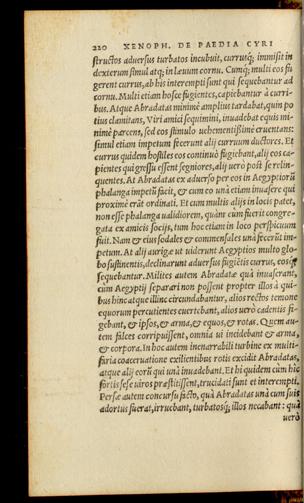 220 XENOPH. DE PAEDIA CYRI
structos aduersus turbatos incubuit, currusq́; immisit in
dexterum simul atq; in leuum cornu. Cumq́; multi eos fu
gerent currus, ab his interempti sunt qui sequebantur ad
cornu. Multi etiam hosce fugientes, capiebantur à curri-
bus. Atque Abradatas minimè amplius tardabat, quin po
tius clamitans, Viri amici sequimini, inuadebat equis mi-
nimè parcens, sed eos stimulo uehementissimè cruentans:
simul etiam impetum fecerunt alij curruum ductores. Et
currus quidem hostiles eos continuò fugiebant, alij eos ca-
pientes qui gressu essent segniores, alij uerò post se relin-
quentes. At Abradatas ex aduerso per eos in Aegyptiorũ
phalanga impetũ facit, & cum eo unà etiam inuasere qui
proximè erãt ordinati. Et cum multis alijs in locis patet,
non esse phalanga ualidiorem, quàm cùm fuerit congre-
gata ex amicis socijs, tum hoc etiam in loco perspicuum
fuit. Nam & eius sodales & commensales unà fecerũt im-
petum. At alij aurigæ ut uiderunt Aegyptios multo glo-
bo sustinentis, declinarunt aduersus fugiẽtis currus, eosq́;
sequebantur. Milites autem Abradatæ quà inuaserant,
cum Aegyptij separari non possent propter illos à qui-
bus hinc atque illinc circundabantur, alios rectos tenore
equorum percutientes euertebant, alios uerò cadentis fi-
gebant, & ipsos, & arma, & equos, & rotas. Quem au-
tem falces corripuissent, omnia ui incidebant & arma,
& corpora. In hoc autem inenarrabili turbine ex multi-
faria coaceruatione exilientibus rotis excidit Abradatas,
atque alij eorũ qui unà inuadebant. Et hi quidem cùm hic
fortis sese uiros præstitissent, trucidati sunt et interempti.
Persæ autem concursu facto, quà Abradatas unà cum suis
adortus fuerat, irruebant, turbatosq́; illos necabant: quà
uerò